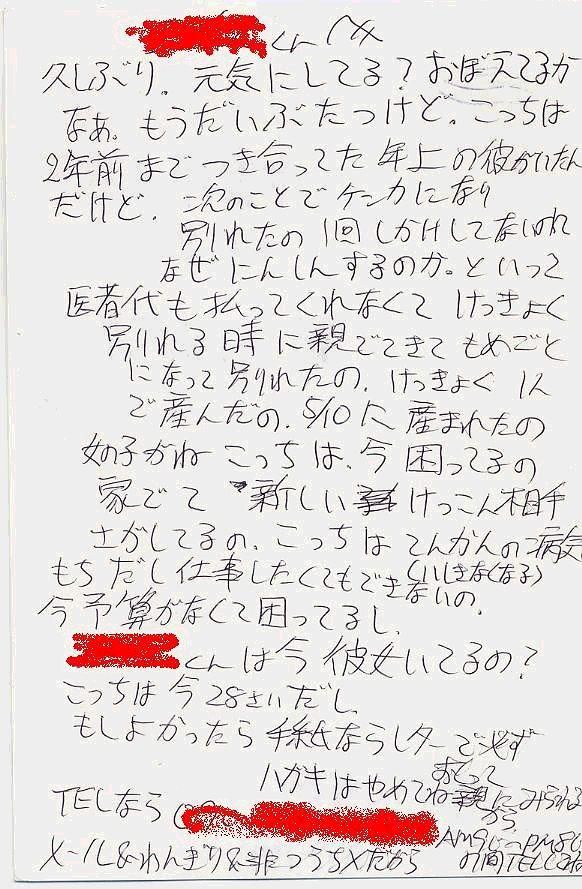 くんへ
久しぶり。元気にしてる?おぼえてるか
なぁ。もうだいぶたつけど。こっちは
2年前までつき合ってた年上の彼がいたん
だけど、次のことでケンカになり
別れたの 1回しかけしてないのに
なぜにんしんするのか。といって
医者代も払ってくれなくてけっきょく
別れる時に親でてきてもめごと
になって別れたの、けっきょく1人
で産んだの、5/10に産まれたの
女の子がね こっちは、今困ってるの
家でて 新しい けっこん相手
さがしてるの、こっちはてんかんの病気
もちだし仕事したくてもできないの、
(いしきなくなる)
今予算がなくて困ってるし、
くんは今彼女いてるの?
こっちは今28さいだし、
もしよかったら手紙ならレターで必ず
おくって
ハガキはやめてね親にみられる
から、
TELなら
AM9じ〜PM8じ
の間TEL
メール&わんぎり&非つうちXだから